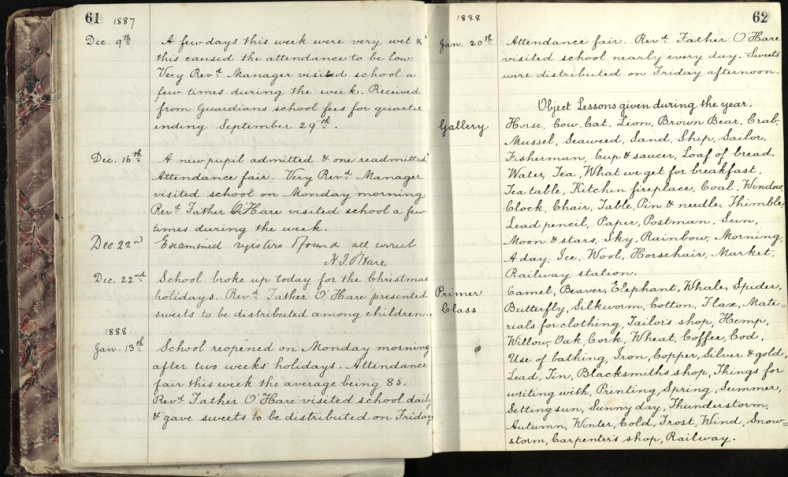 61 1887
Dec. 9th A few days this week were very wet &
this caused the attendance to be low.
Very Revd. Manager visited school a
few times during the week. Received
from Guardians school fees for quarter
ending September 29th.
Dec. 16th A new pupil admitted & one readmitted
Attendance fair. Very Revd. Manager
visited school on Monday morning
Revd. Father O'Hare visited school a few
times during the week.
Dec 22nd Examined found all
Dec. 22nd School broke up today for the Christmas
holidays. Revd. Father O'Hare presented
sweets to be distributed among children.
1888
Jan. 13th School reopened on Monday morning
after two weeks holidays. Attendance
fair this week the average being 85.
Revd. Father O'Hare visited school daily
& gave sweets to be distributed on Friday
1888 62
Jan. 20th Attendance fair. Revd. Father O'Hare
visited school nearly every day. Sweets
were distributed on Friday afternoon.
Object Lessons given during the year.
Gallery Horse, Cow, Cat, Lion, Brown Bear, Crab,
Mussel, Seaweed, Sand, Ship, Sailor,
Fisherman, Cup & saucer, Loaf of bread,
Water, Tea, What we get for breakfast,
Tea table, Kitchen fireplace, Coal, Window,
Clock, Chair, Table, Pin & needle, Thimble,
Lead pencil, Paper, Postman, Sun,
Moon & stars, Sky, Rainbow, Morning,
A day, Ice, Wool, Horsehair, Market,
Railway station.
Primer Class Camel, Beaver, Elephant, Whale, Spider,
Butterfly, Silkworm, Cotton, Flax, Mate-
rials for clothing, Tailor's shop, Hemp,
Willow, Oak, Cork, Wheat, Coffee, Cod,
Use of bathing, Iron, Copper, Silver & gold,
Lead, Tin, Blacksmiths shop, Things for
writing with, Printing, Spring, Summer,
Setting sun, Sunny day, Thunderstorm,
Autumn, Winter, Cold, Frost, Wind, Snow=
storm, Carpenter's shop, Railway.